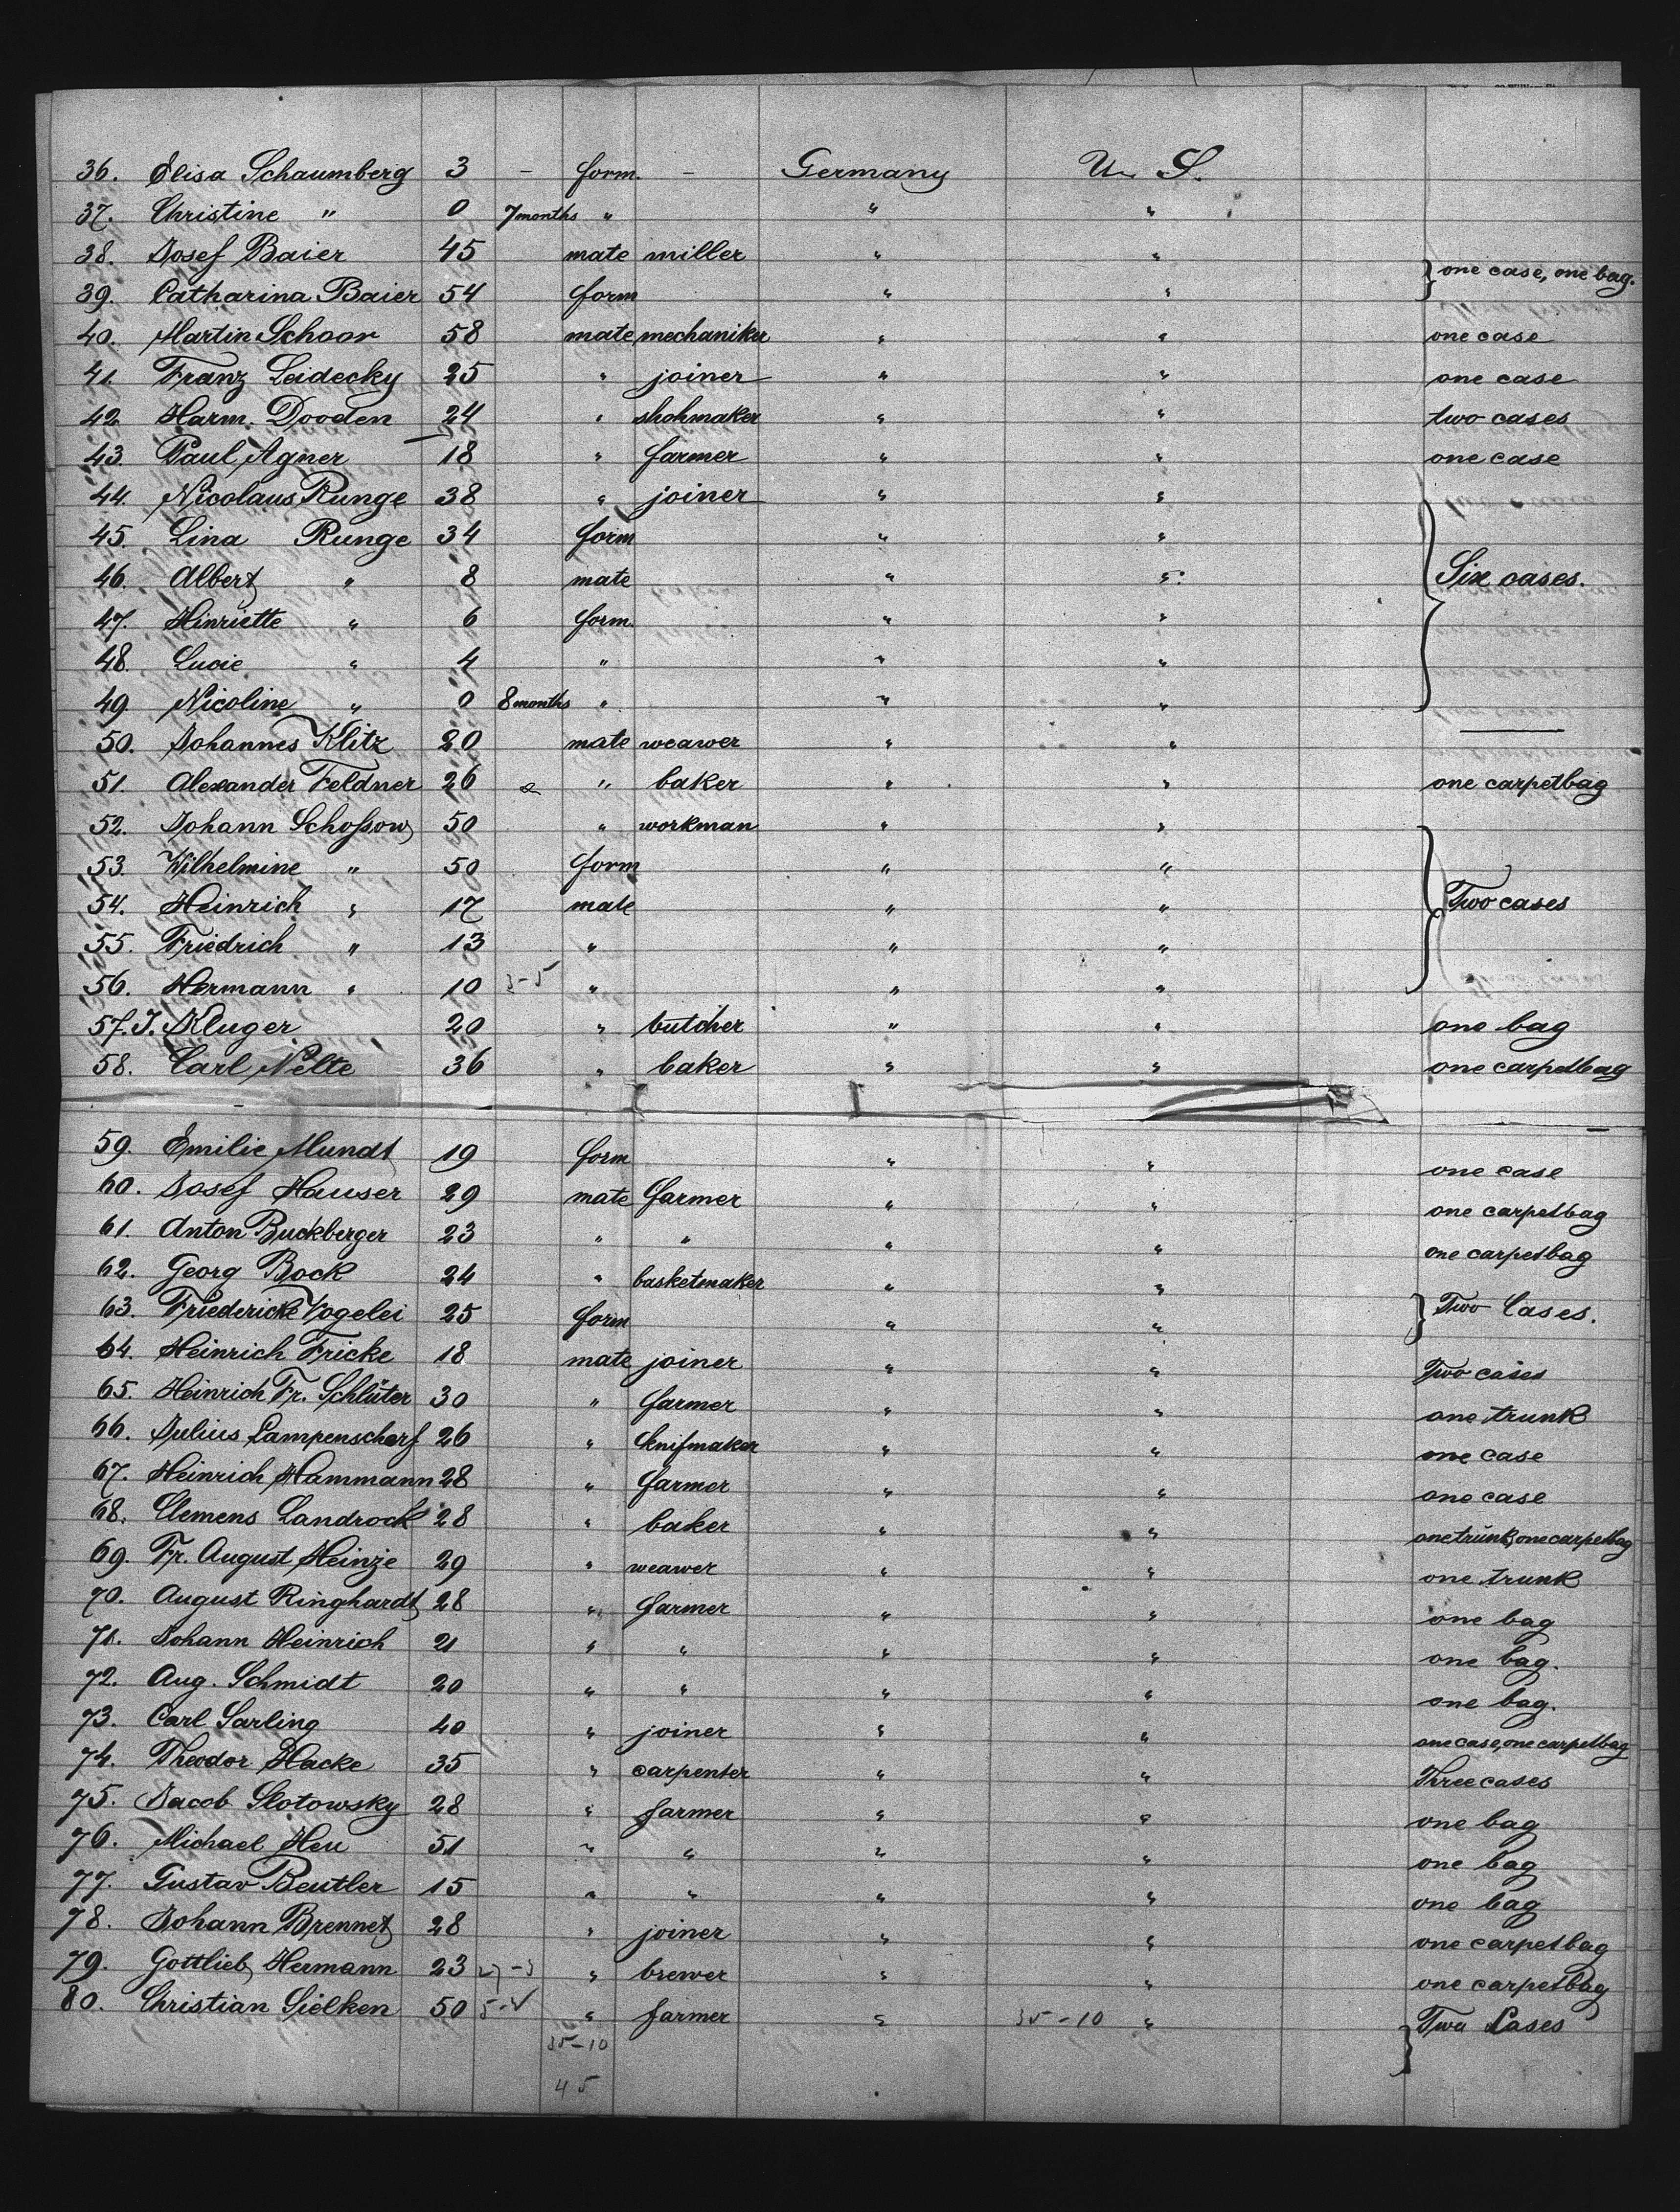 36. Elisa Schaumberg 3 - form. - Germany U. S.
37. Christine " 0 7 months " " "
38. Josef Baier 45 mate miller " " } one case, one bag.
39. Catharina Baier 54 form " "
40. Martin Schoor 58 mate mechaniker " " one case
41. Franz Leidecky 25 " joiner " " one case
42. Harm. Dooden 24 " shohmaker " " two cases
43. Paul Agner 18 " farmer " " one case
44. Nicolaus Runge 38 " joiner " "
45. Lina Runge 34 form " "
46. Albert " 8 mate " " } Six cases.
47. Hinriette " 6 form. " "
48. Lucie " 4 " " "
49. Nicoline " 0 8 months " " "
50. Johannes Klitz 20 mate weawer " " —
51. Alexander Feldner 26 " baker " " one carpetbag
52. Johann Schossow 50 " workman " "
53. Wilhelmine " 50 form " "
54. Heinrich " 17 mate " " } Two cases
55. Friedrich " 13 " " "
56. Hermann " 10 3-5 " " "
57. J. Kluger 20 " butcher " " one bag
58. Carl Nelte 36 " baker " " one carpetbag
59. Emilie Mundt 19 form " " one case
60. Josef Hauser 29 mate farmer " " one carpetbag
61. Anton Buckberger 23 " " " " one carpetbag
62. Georg Bock 24 " basketmaker " "
63. Friedericke Vogelei 25 form " " } Two Cases.
64. Heinrich Fricke 18 mate joiner " " Two cases
65. Heinrich Fr. Schlüter 30 " farmer " " one trunk
66. Julius Lampenscherf 26 " knifmaker " " one case
67. Heinrich Hammann 28 " farmer " " one case
68. Clemens Landrock 28 " baker " " one trunk, one carpetbag
69. Fr. August Heinze 29 " weawer " " one trunk
70. August Ringhardt 28 " farmer " " one bag
71. Johann Heinrich 21 " " " " one bag.
72. Aug. Schmidt 20 " " " " one bag.
73. Carl Sarling 40 " joiner " " one case, one carpetbag
74. Theodor Hacke 35 " carpenter " " Three cases
75. Jacob Slotowsky 28 " farmer " " one bag
76. Michael Heu 51 " " " " one bag
77. Gustav Beutler 15 " " " " one bag
78. Johann Brennet 28 " joiner " " one carpetbag
79. Gottlieb Hermann 23 27-3 " brewer " " one carpetbag
80. Christian Sielken 50 " farmer " 35-10 " } Two Cases
35-10
45